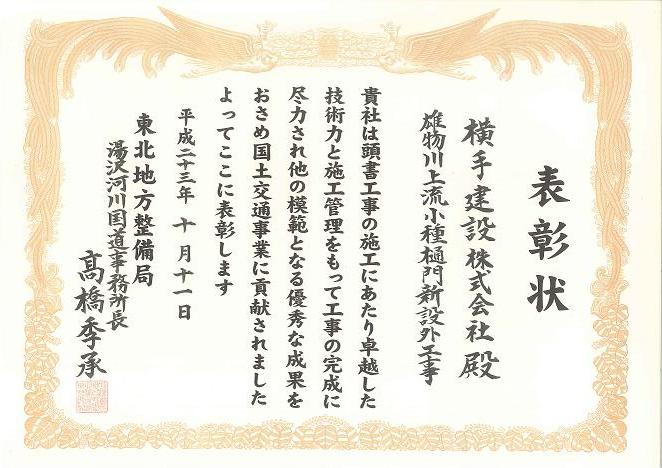 表彰状
横手建設株式会社殿
雄物川上流小種樋門新設外工事
貴社は頭書工事の施工にあたり卓越した
技術力と施工管理をもって工事の完成に
尽力され他の模範となる優秀な成果を
おさめ国土交通事業に貢献されました
よってここに表彰します
平成二十三年 十月十一日
東北地方整備局
湯沢河川国道事務所長
髙橋季承